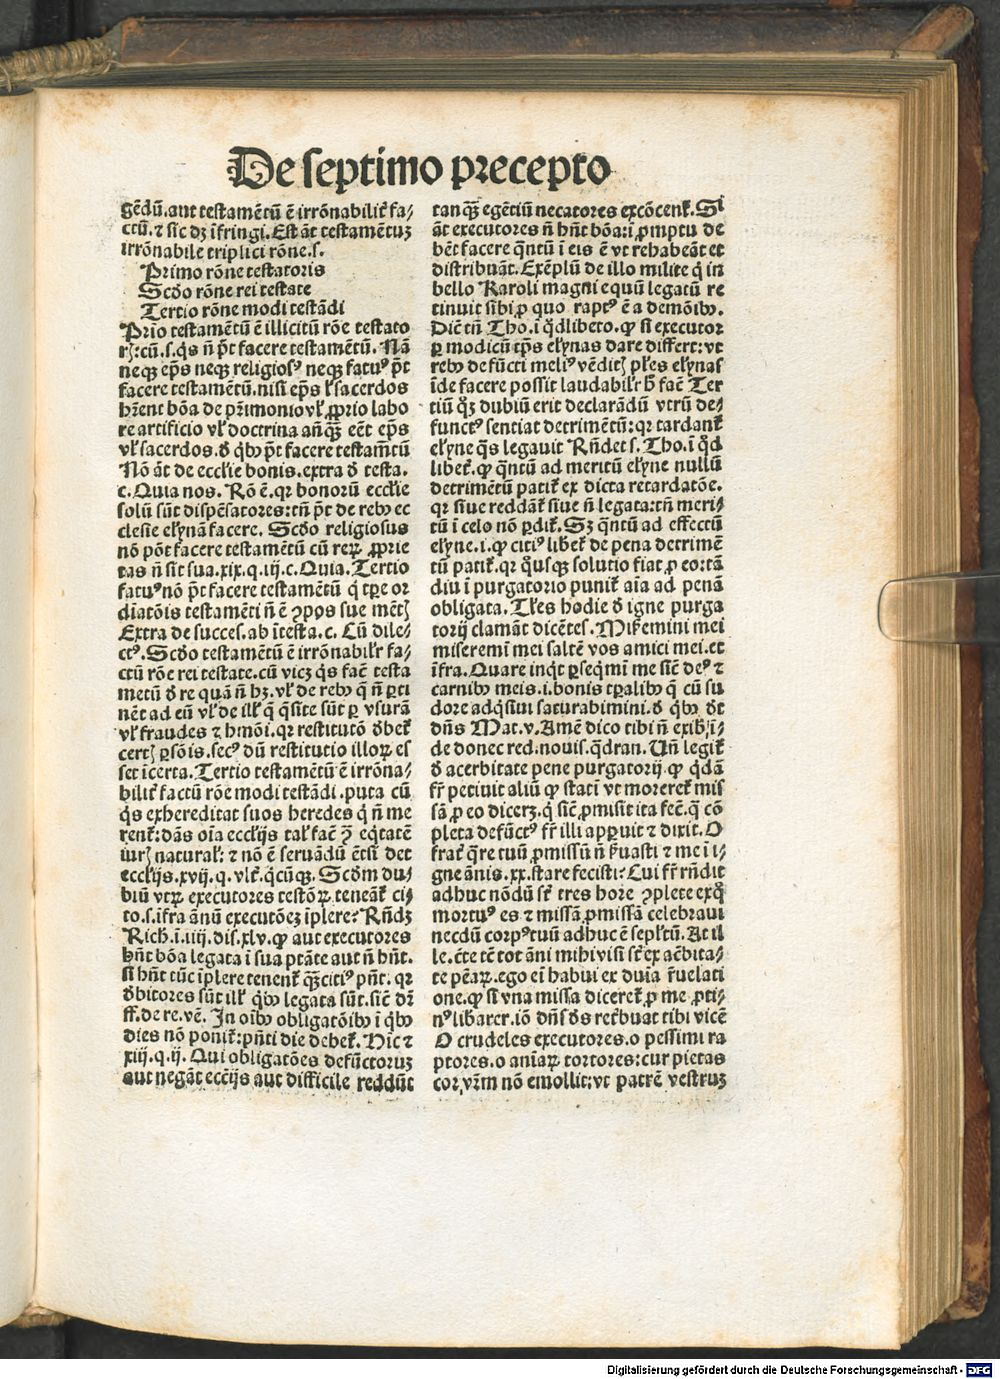 De septimo precepto
gēdū. aut testamētū ē irrōnabilit̄ fa⸗
ctū. ⁊ sic dꝫ īfringi. Est āt testamētuꝫ
irrōnabile triplici rōne. s.
Primo rōne testatoris
Scd̄o rōne rei testate
Tertio rōne modi testādi
Prīo testamētū ē illicitū rōe testato
rꝭ: cū. s. qͥs n̄ pt̄ facere testamētū. Nā
neqꝫ ep̄s neqꝫ religiosꝰ neqꝫ fatuꝰ pt̄
facere testamētū. nisi ep̄s vl̓ sacerdos
hr̄ent bōa de pr̄imonio vl̓ ꝓprio labo
re artificio vl̓ doctrina anq̄ꝫ eēt ep̄s
vl̓ sacerdos. d̓ qͥbꝰ pt̄ facere testam̄tū
Nō āt de eccl̓ie bonis. extra d̓ testa.
c. Quia nos. Rō ē. qꝛ bonorū eccl̓ie
solū sūt dispēsatores: tn̄ pt̄ de rebꝰ ec
clesie elꝰynā facere. Scd̄o religiosus
nō pōt facere testamētū cū reꝝ ꝓprie
tas n̄ sit sua. xix. q. iij. c. Quia. Tertio
fatuꝰ nō pt̄ facere testamētū qͥ tp̄e or
diatōis testamēti n̄ ē ꝯpos sue mētꝭ
Extra de succes. ab ītesta. c. Cū dile⸗
ctꝰ. Scd̄o testamētū ē irrōnabilr̓ fa⸗
ctū rōe rei testate. cū vicꝫ qͥs facͭ testa
metū d̓ re quā n̄ hꝫ. vl̓ de rebꝰ q̄ n̄ ꝑti
nēt ad eū vl̓ de ill̓ q̄ qͥsite sūt ꝑ vsurā
vl̓ fraudes ⁊ hmōi. qꝛ restitutō d̓bet̓
certꝭ ꝑsōis. secꝰ dū restitutio illoꝝ es
set īcerta. Tertio testamētū ē irrōna⸗
bilit̓ factū rōe modi testādi. puta cū
qͥs exhereditat suos heredes q̄ n̄ me
rent̓: dās oīa eccl̓ijs tal̓ facͭ ꝯ eqͥtatē
iurꝭ natural̓: ⁊ nō ē seruādū etsi det
eccl̓ijs. xvij. q. vlt̓. qͥcūqꝫ. Scd̄m du⸗
biū vtꝝ executores testōꝝ teneāt̓ ci⸗
to. s. ifra ānū executōeꝫ īplere? Rn̄dꝫ
Rich̓. ī. iiij. dis. xlv. qꝙ aut executores
hn̄t bōa legata ī sua ptāte aut n̄ hn̄t.
si hn̄t tūc īplere tenent̓ q̄ꝫcitiꝰ pn̄t. qꝛ
d̓bitores sūt ill̓ qͥbꝰ legata sūt. sic̄ dr̄
ff. de re. ve. In oībꝰ obligatōibꝰ ī qͥbꝰ
dies nō ponit̓: pn̄ti die debet̓. Hic ⁊
xiij. q. ij. Qui obligatōes defūctoruꝫ
aut negāt ecc̄ijs aut difficile reddūt
tanq̄ꝫ egētiū necatores excōcent̓. Si
āt executores n̄ hn̄t bōa: ī ꝓmptu de
bēt facere qͣntū ī eis ē vt rehabeāt et
distribuāt. Exēplū de illo milite qͥ in
bello Karoli magni equū legatū re
tinuit sibi ꝓ quo raptꝰ ē a demōibꝰ.
Dicͭ tn̄ Tho. ī qͦdlibeto. ꝙ si executor
ꝑ modicū tp̄s elꝰynas dare differt: vt
rebꝰ defūcti meliꝰ vēditꝭ pl̓es elꝰynas
īde facere possit laudabilr̓ h̓ facͭ Ter
tiū qͦꝫ dubiū erit declarādū vtrū de⸗
functꝰ sentiat detrimētū: qꝛ tardant̓
elꝰyne qͣs legauit Rn̄det s. Tho. ī qͦd
libet̓. ꝙ qͣntū ad meritū elꝰyne nullū
detrimētū patit̓ ex dicta retardatōe.
qꝛ siue reddāt̓ siue n̄ legata: tn̄ meri⸗
tū ī celo nō ꝑdit̓. Sꝫ qͣntū ad effectū
elꝰyne. i. ꝙ citiꝰ liberet̓ de pena detrimē
tū patit̓. qꝛ qͦusqꝫ solutio fiat ꝓ eo: tā
diu ī purgatorio punit̓ aīa ad penā
obligata. Tl̓es hodie d̓ igne purga
torij clamāt dicētes. Mis̓emini mei
miseremī mei saltē vos amici mei. et
īfra. Quare inqͥt ꝑseqͥmī me sic̄ deꝰ ⁊
carnibꝰ meis. i. bonis tꝑalibꝰ q̄ cū su
dore adqͥsiui saturabimini. d̓ qͥbꝰ d̓t
dn̄s Mat. v. Amē dico tibi n̄ exibꝭ ī⸗
de donec red. nouis. qͣdran. Un̄ legit̓
d̓ acerbitate pene purgatorij ꝙ qͥdā
fr̄ petiuit aliū ꝙ statī vt moreret̓ mis
sā ꝓ eo dicerꝫ. qͥ sic̄ ꝓmisit ita fecͭ. q̄ cō
pleta defūctꝰ fr̄ illi apparuit ⁊ dixit. O
frat̓ qͣre tuū ꝓmissū n̄ s̓uasti ⁊ me ī i⸗
gne ānis. xx. stare fecisti? Cui fr̄ rn̄dit
adhuc nōdū st̄ tres hore ꝯplete exqͦ
mortuꝰ es ⁊ missā ꝓmissā celebraui
necdū corpꝰ tuū adhuc ē sepl̓tū. At il
le. c̄te tē tot āni mihi visi st̄ ex ac̓bita⸗
te peāꝝ. ego ei habui ex duīa r̓uelati
one. ꝙ si vna missa diceret̓ ꝓ me ꝓti⸗
nꝰ lib̓arer. iō dn̄s d̓s ret̓buat tibi vicē
O crudeles executores. o pessimi ra
ptores. o aniaꝝ tortores: cur pietas
cor vr̄m nō emollit: vt patrē vestruꝫ
Digitalisierung gefördert durch die Deutsche Forschungsgemeinschaft - DFG